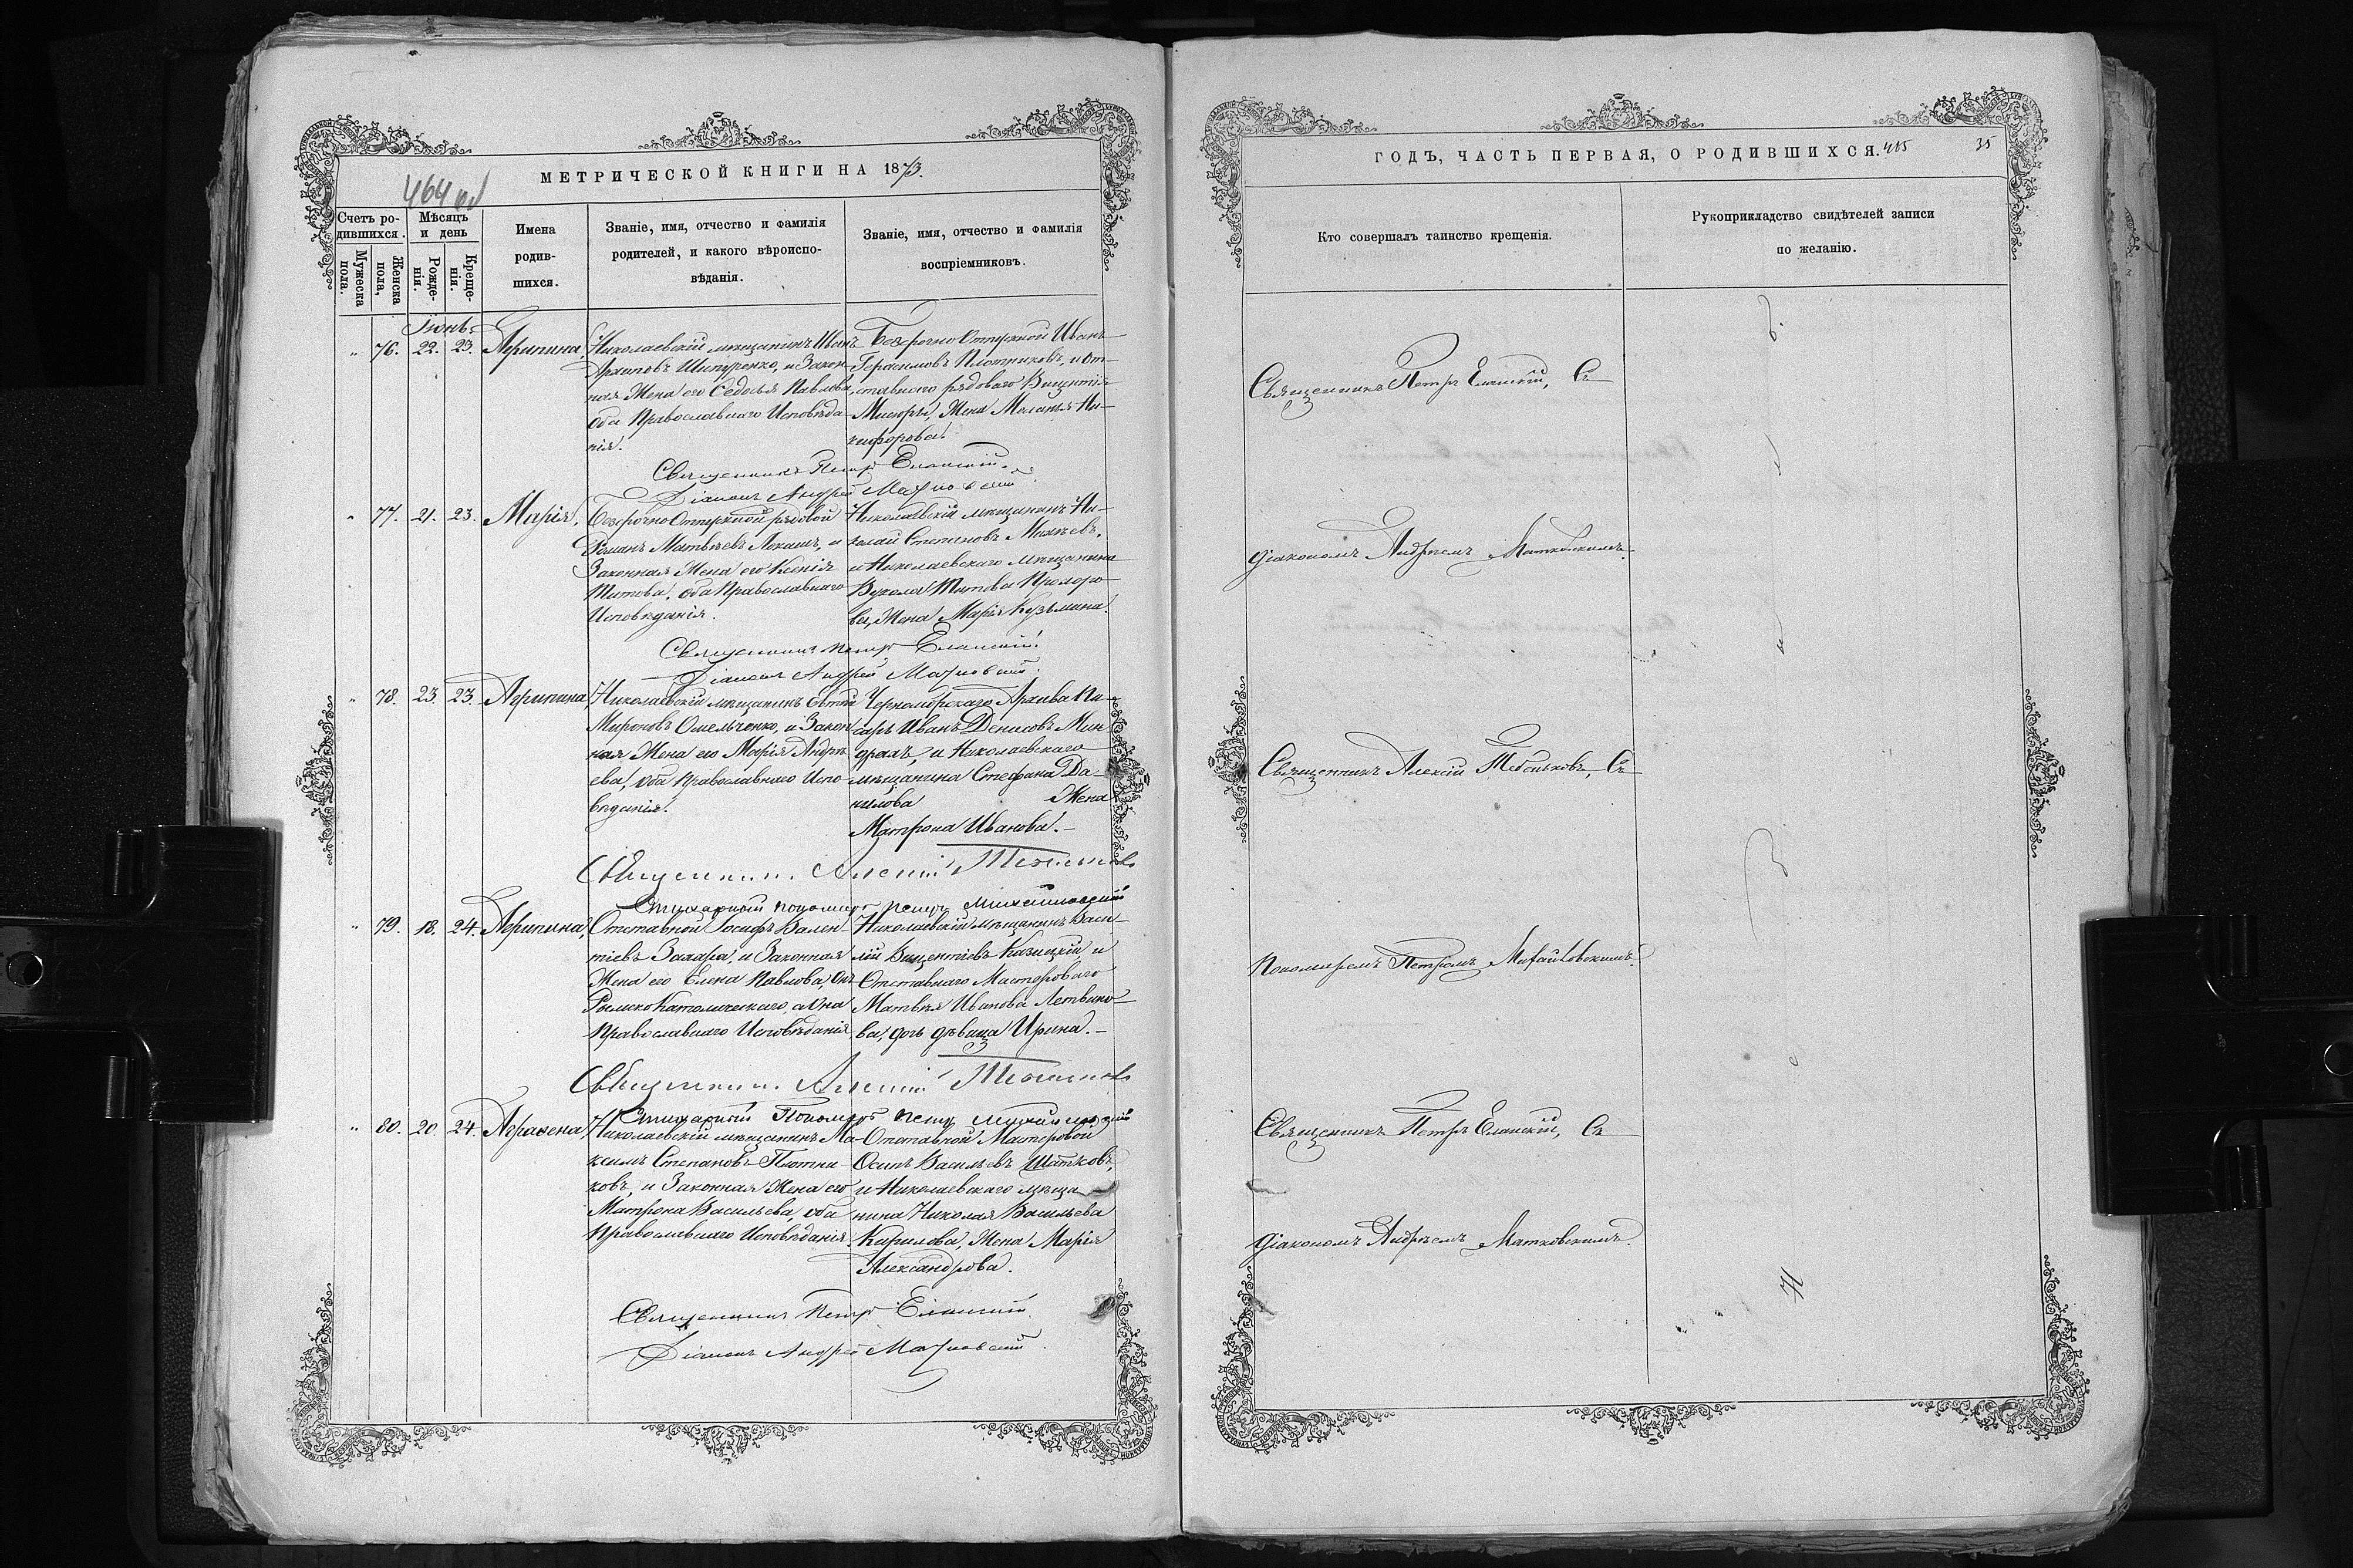 МЕТРИЧЕСКОЙ КНИГИ НА 1873.
464 об
Счетъ ро-
дившихся.
Мужеска пола.
Женска пола,
Мѣсяцъ
и день
Рожде-
нія.
Креще-
нія.
Имена
родив-
шихся.
Званіе, имя, отчество и фамилія
родителей, и какого вѣроиспо-
вѣданія.
Званіе, имя, отчество и фамилія
воспріемниковъ.
Іюнь.
" 76. 22. 23. Агрипина,
Николаевскій мѣщанинъ Иванъ
Архиповъ Шипуренко, и Закон-
ная Жена его Ѳедосья Павлова,
оба Православнаго Исповѣда-
нія.
Безсрочно Отпускной Иванъ
Герасимовъ Плотниковъ, и от-
ставнаго рядоваго Викентія
Жена Меланья Ни-
кифорова.
Священникъ Петръ Еланскій.
Діаконъ Андрей Матковскій.
" 77. 21. 23. Марія,
Безсрочно Отпускной рядовой
Романъ Матвѣевъ Лекашъ, и
Законная Жена его Ксенія
Титова, оба Православнаго
Исповѣданія.
Николаевскій мѣщанинъ Ни-
колай Степановъ Михѣевъ,
и Николаевскаго мѣщанина
Вукола Титова Прохоро-
ва, Жена Марія Кузьмина.
Священникъ Петръ Еланскій.
Діаконъ Андрей Матковскій.
" 78. 23. 23. Агрипина,
Николаевскій мѣщанинъ Евтій
Мироновъ Омельченко, и Закон-
ная Жена его Марія Андрѣ-
ева, оба Православнаго Испо-
вѣданія.
Черноморскаго Архива Пи-
сарь Иванъ Денисовъ
и Николаевскаго
мѣщанина Стефана Да-
нилова Жена
Матрона Иванова.
Священникъ Алексій Тебеньковъ
Пономарь Петръ Михайловскій
" 79. 18. 24. Агрипина,
Отставной Іосифъ Вален-
тіевъ Захара, и Законная
Жена его Елена Павлова, Онъ
Римско Католическаго, а Она
Православнаго Исповѣданія,
Николаевскій Мѣщанинъ Васи-
лій Викентіевъ Казицкій, и
Отставнаго Мастероваго
Матвѣя Иванова Летвино-
ва, дочь дѣвица Ирина.
Священникъ Алексій Тебеньковъ
Пономарь Петръ Михайловскій
" 80. 20. 24. Агрипена,
Николаевскій мѣщанинъ Ма-
ксимъ Степановъ Плотни-
ковъ, и Законная Жена его
Матрона Васильева, оба
Православнаго Исповѣданія.
Отставной Мастеровой
Осипъ Васильевъ Шатковъ,
и Николаевскаго мѣща-
нина Николая Васильева
Карилова, Жена Марія
Александрова.
Священникъ Петръ Еланскій.
Діаконъ Андрей Матковскій.
ГОДЪ, ЧАСТЬ ПЕРВАЯ, О РОДИВШИХСЯ. 465 35
Кто совершалъ таинство крещенія.
Рукоприкладство свидѣтелей записи
по желанію.
Священникъ Петръ Еланскій, Съ
діакономъ Андреемъ Матковскимъ.
Священникъ Алексій Тебеньковъ, Съ
Пономаремъ Петромъ Михайловскимъ.
Священникъ Петръ Еланскій, Съ
діакономъ Андреемъ Матковскимъ.